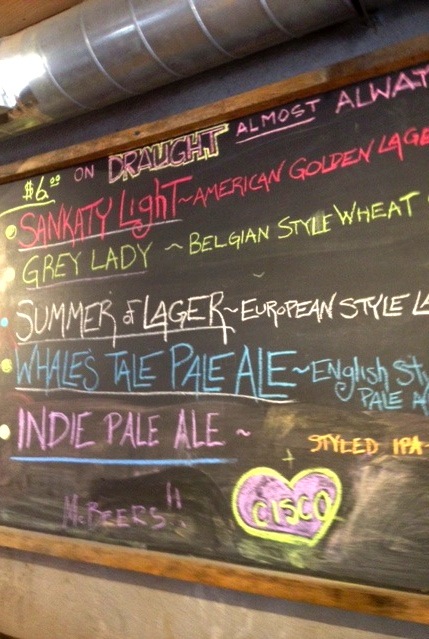 $6.00 ON DRAUGHT ALMOST ALWA
SANKATY LIGHT ~ AMERICAN GOLDEN LAGE
GREY LADY ~ BELGIAN STYLE WHEAT
SUMMER of LAGER ~ EUROPEAN STYLE LA
WHALE'S TALE PALE ALE ~ English Sty
PALE A
INDIE PALE ALE ~ STYLED IPA~
McBEERS!!
CISCO